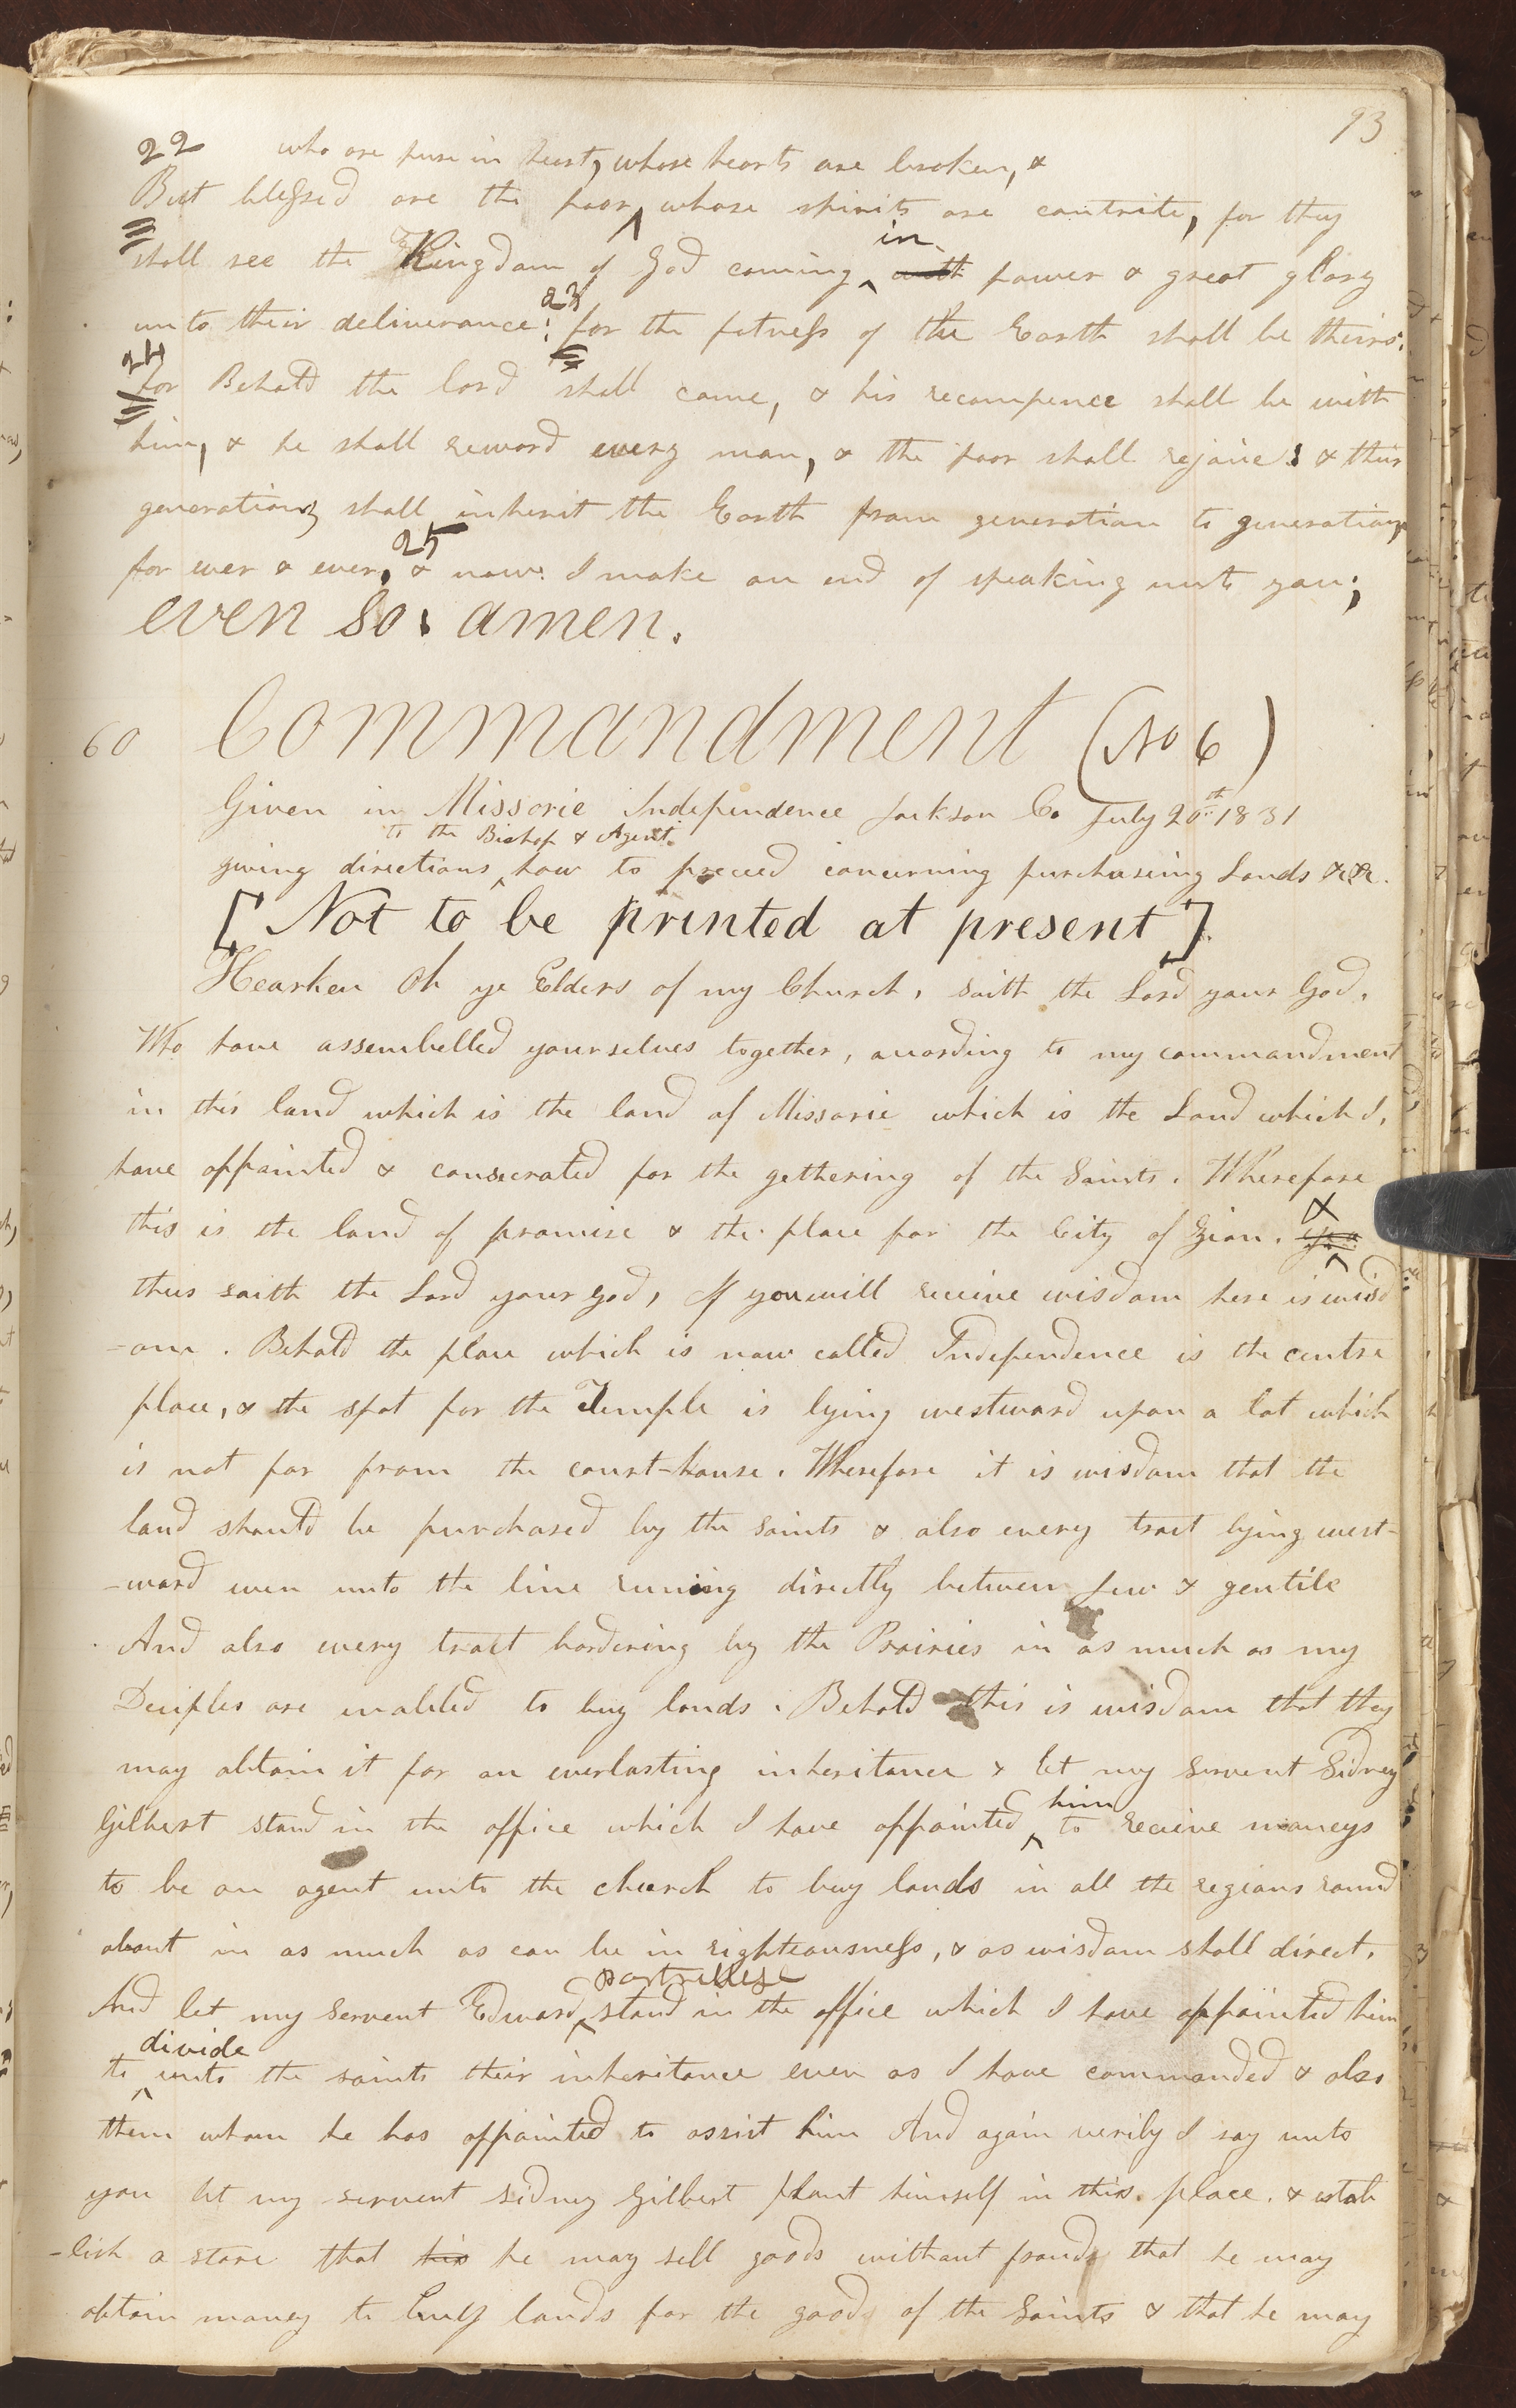 93
22 who are pure in heart, whose hearts are broken, &
But blessed are the poor, whose spirits are contrite, for they
in
shall see the Kingdom of God coming with power & great glory
unto their deliverance: 23 for the fatness of the Earth shall be theirs:
24 for Behold the lord shall come, & his recompence shall be with
him, & he shall reward every man, & the poor shall rejoice: & their
generations shall inherit the Earth from generation to generation,
for ever & ever, 25 & now I make an end of speaking unto you;
even so: amen.
60 Commandment (No 6)
Given in Missorie Independence Jackson Co July 20th 1831
to the Bishop & Agent
giving directions how to proceed concerning purchaseing Lands &c &c.
[Not to be printed at present]
Hearken Oh ye Elders of my Church, saith the Lord your God,
Who have assembelled yourselves together, according to my commandment
in this land which is the land of Missorie which is the Land which I,
have appointed & consecrated for the gethering of the Saints. Wherefore
&
this is the land of promise & the place for the City of Zion. yea
thus saith the Lord your God, If you will receive wisdom here is wisd
-om. Behold the place which is now called Independence is the centre
place, & the spot for the Temple is lying westward upon a lot which
is not far from the court-house. Wherefore it is wisdom that the
land should be purchased by the saints & also every tract lying west-
-ward even unto the line runing directly between Jew & gentile
And also every tract bordering by the Prairies in as much as my
Deciples are enabled to buy lands. Behold this is wisdom that they
may obtain it for an everlasting inheritance & let my Servent Sidney
him
Gilbert stand in the office which I have appointed to receive moneys
to be an agent unto the church to buy lands in all the regions round
about in as much as can be in righteousness, & as wisdom shall direct.
partridge
And let my Servent Edward stand in the office which I have appointed him
divide
to unto the saints their inheritance even as I have commanded & also
them whom he has appointed to assist him And again verily I say unto
you let my servent Sidney Gilbert plant himself in this place. & estab
-lish a store that his he may sell goods without fraud that he may
obtain money to buy lands for the good of the Saints & that he may